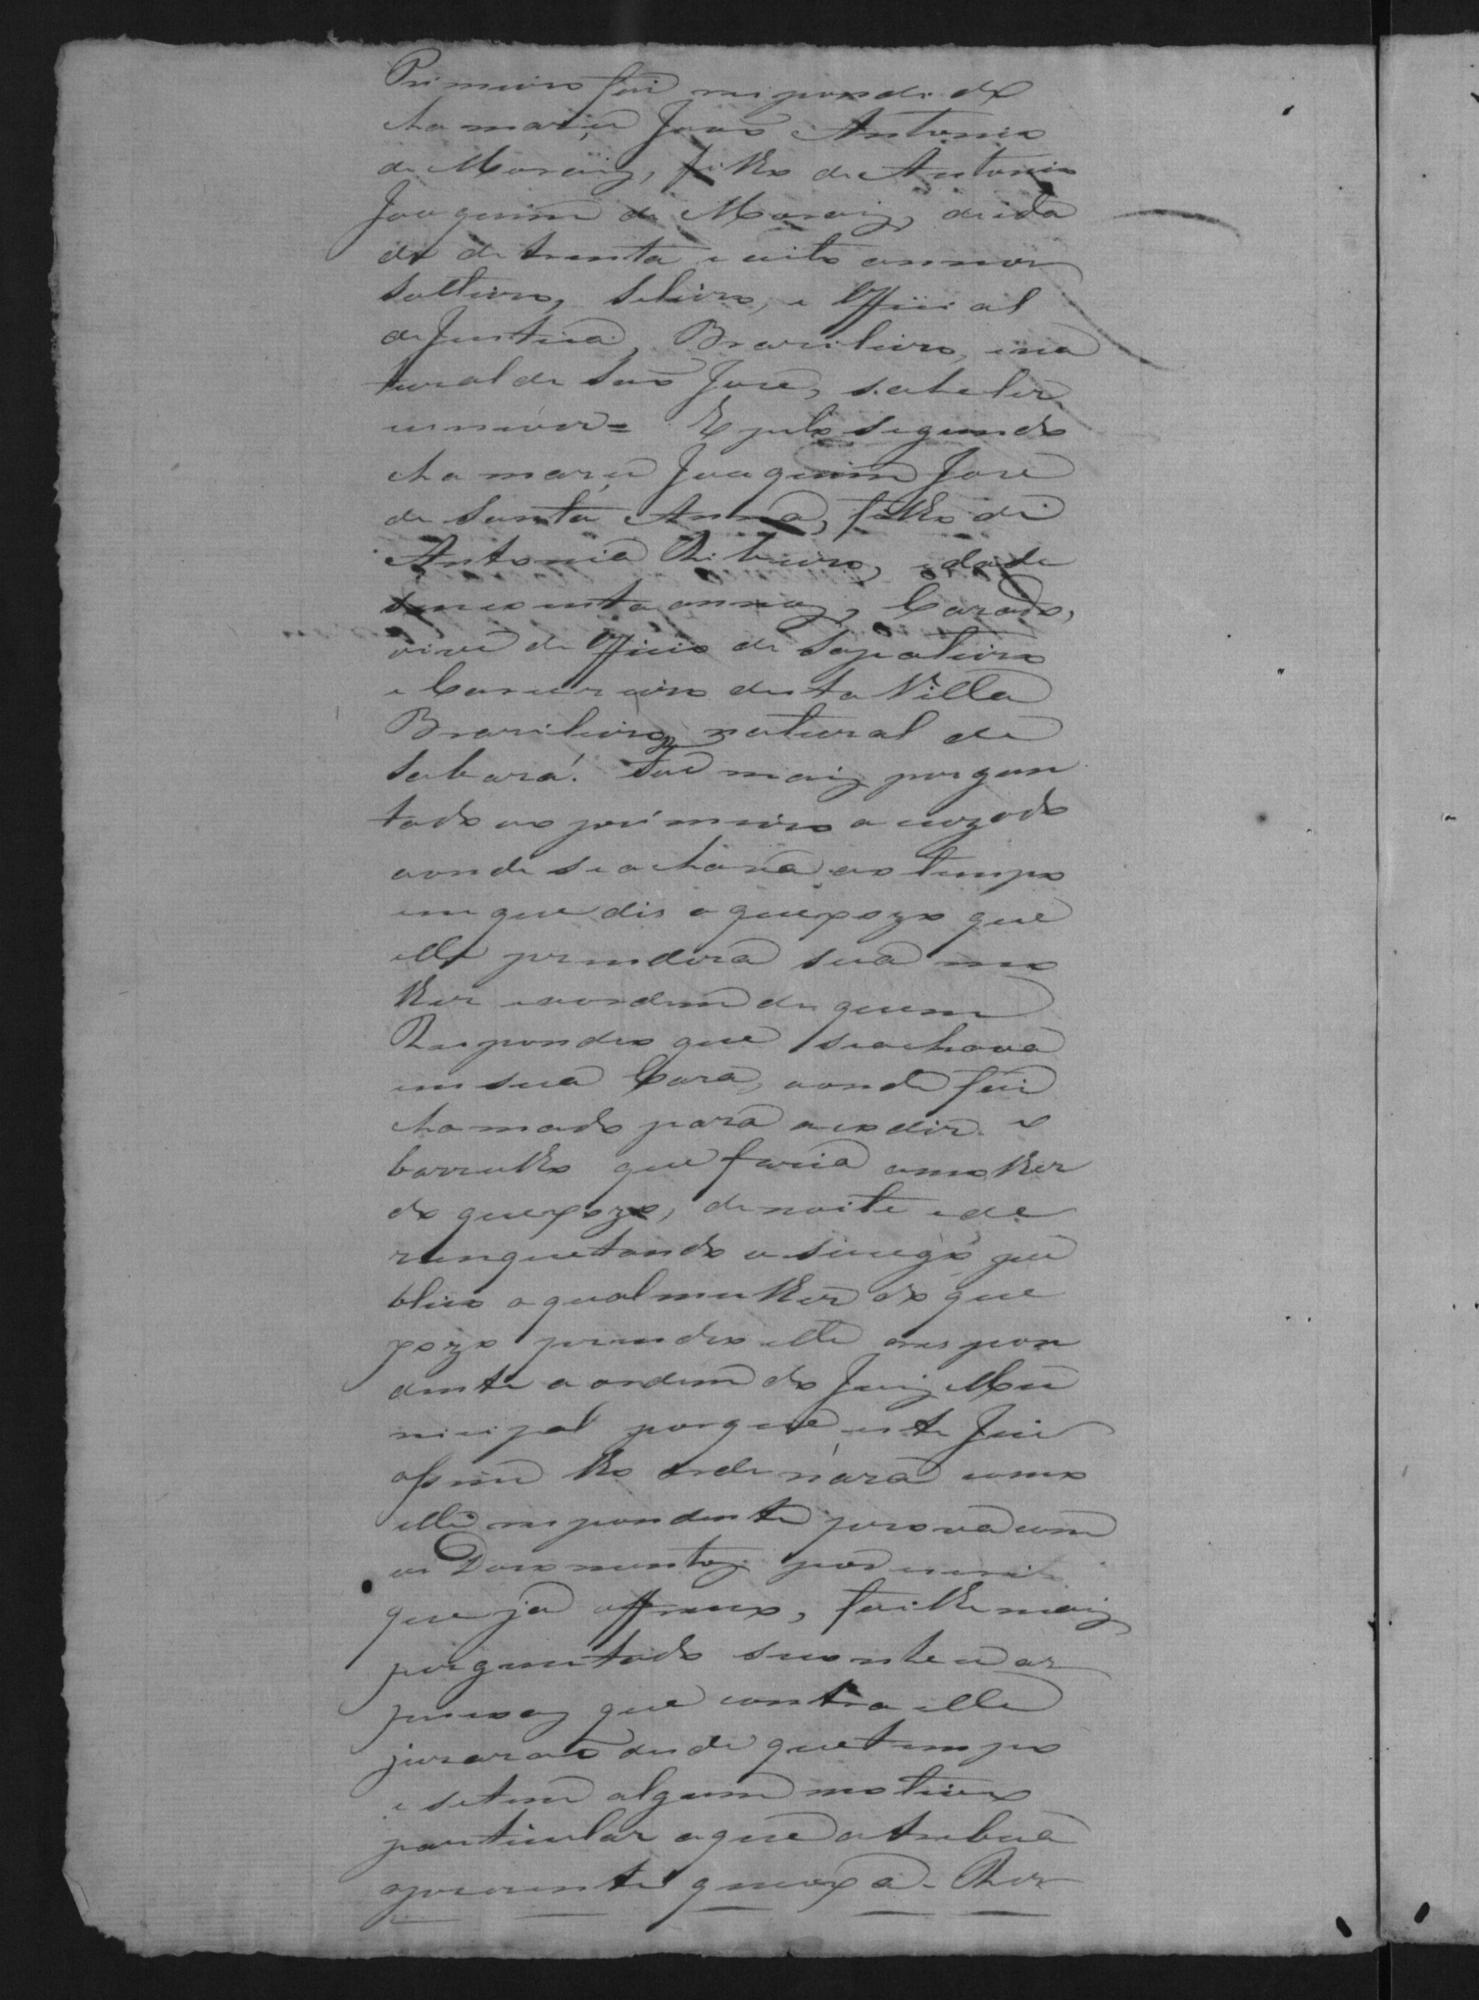 Primeiro foi respondido
chamarse João Antonio
de Moraiz, filho de Antonio
Joaquim de Moraiz, de ida
de de trinta e oito annos
Solteiro, Seleiro, e Official
de Justiça, Brasileiro, e na
tural de São José, sabe ler
escrever = E pelo segundo
chamarse Joaquim José
de Santa Anna, filho de
Antonia Ribeiro, edade
sincoenta annos, Cazado,
vive de Officio de Sapateiro
e Carcereiro desta Villa
Brasileiro, natural de
Sabará. Foi mais pergun
tado ao primeiro acuzado
aonde se achava ao tempo
em que dis o queixozo que
elle prendera sua mo
lher e a ordem de quem
Respondeo que se achava
em sua Caza, aonde foi
chamado para acodir o
barrulho que fazia a molher
do queixozo, de noite e de
renquetando o sucego pu
blico a qual mulher do quei
xozo prendeo elle respon
dente a ordem do Juiz Mu
nicipal porque este Juiz
assim lho ordenara como
elle respondente prova com
os Documentos
que ja offreceo, foi lhe mais
perguntado se conhece as
pessoas que contra elle
jurarão desde que tempo
e se tem algum motivo
particular a que atribua
a presente queixa. Res